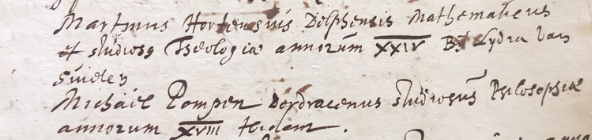 Martinus Hortensius Delphensis Mathematicus
et studiosq Theologiae annorum XXIV By Lydia van
Swieten
Michael Pompen Dordracenus studiosus Philosophiae
annorum XVIII Ibidem.